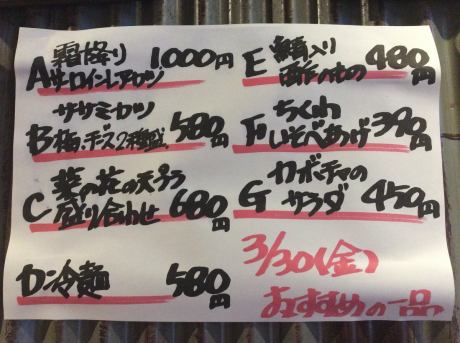 霜降り
A牛ロインレアカツ 1000円
ササミカツ
B梅、チーズ2種盛 580円
菜の花の天ぷら
C 盛り合わせ 680円
D冷麺 580円
E 鯖入り 480円
ちくわ
Fいそべあげ 390円
カボチャの
G サラダ 450円
3/30(金)
おすすめの一品